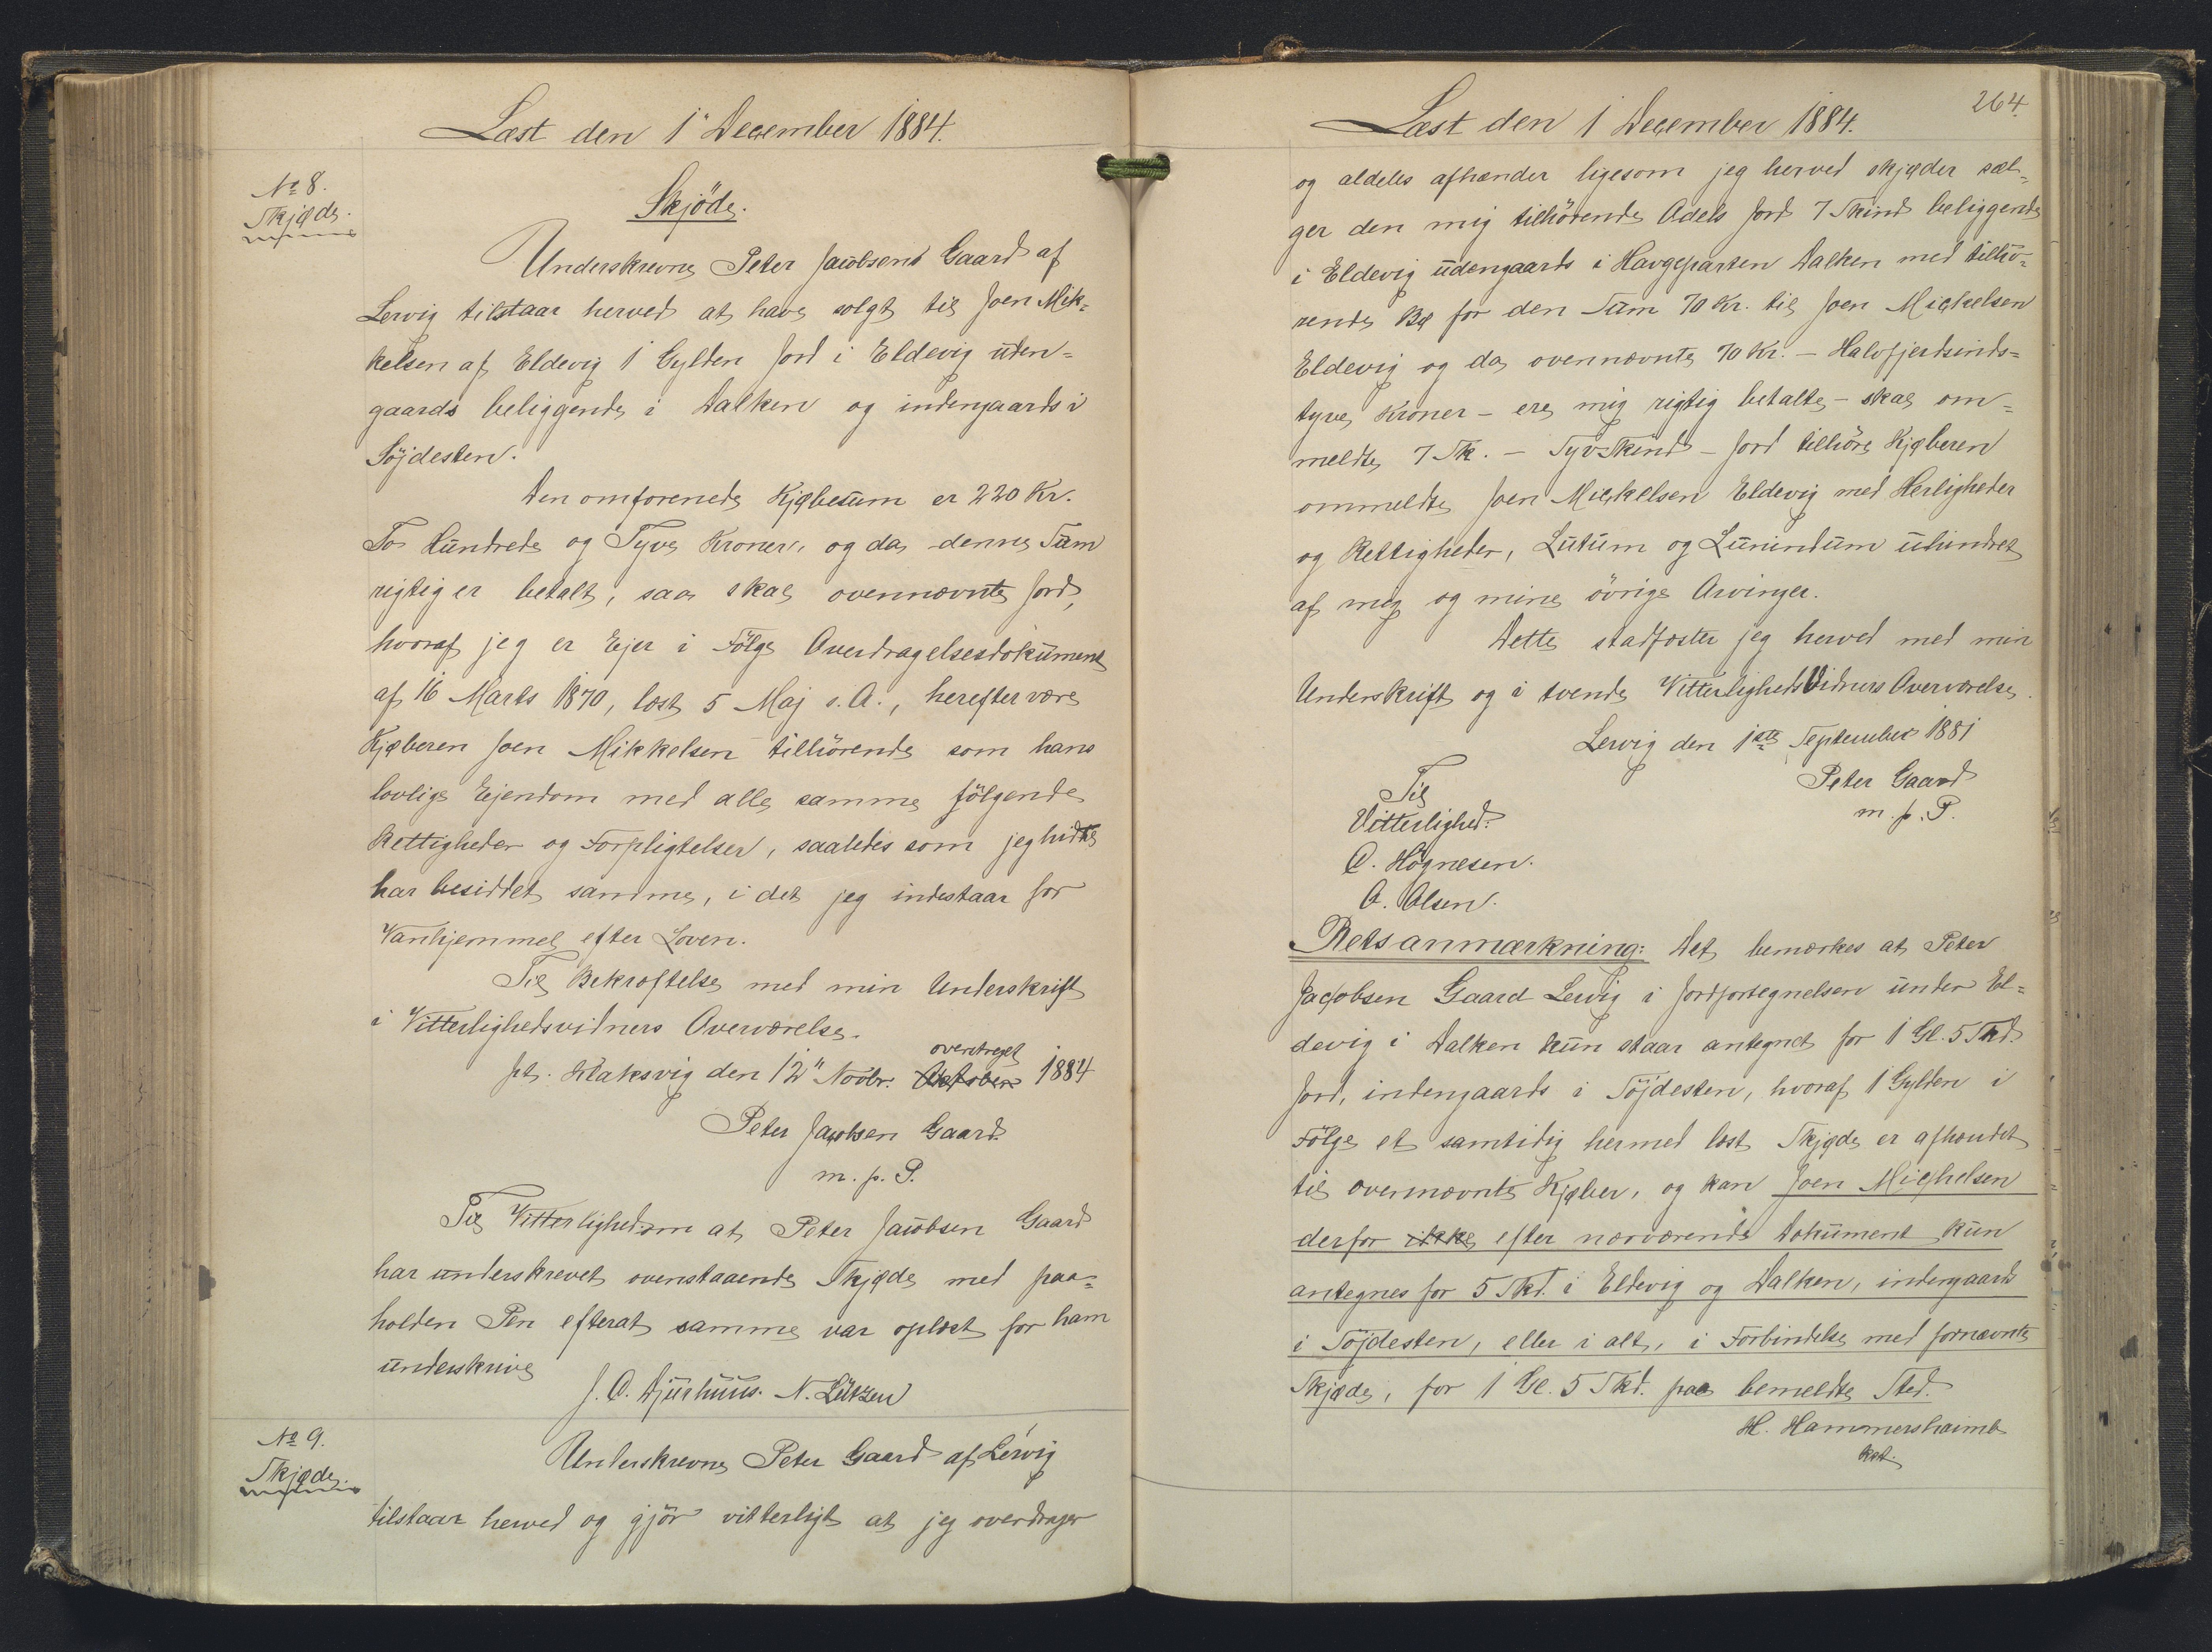 Læst den 1" December 1884.
No 8.
Skjøde.
Skjöde.
Underskrevne Peter Jacobsen Gaard af
Lervig tilstaar herved at have solgt til Joen Mik=
kelsen af Eldevig 1 Gylden Jord i Eldevig uden=
gaards beliggende i Dalken og indengaards i
Töjdesten.
Den omforenede Kjøbesum er 220 Kr.
To Hundrede og Tyve Kroner, og da denne Sum
rigtig er betalt, saa skal ovennævnte Jord,
hvoraf jeg er Ejer i Fölge Overdragelsesdokument
af 16 Marts 1870, læst 5 Maj s. A., herefter være
Kjøberen Joen Mikkelsen tilhörende som hans
lovlige Ejendom med alle samme fölgende
Rettigheder og Forpligtelser, saaledes som jeg hidtil
har besiddet samme, i det jeg indestaar for
Vanhjemmel efter Loven.
Til Bekræftelse med min Underskrift
i Vitterlighedsvidners Overværelse.
overstreget
pt. Klaksvig den 12" Novbr. October 1884
Peter Jacobsen Gaard.
m. p. P.
Til Vitterlighed om at Peter Jacobsen Gaard
har underskrevet ovenstaaende Skjøde med paa=
holden Pen efterat samme var oplæst for ham
underskrive
J. C. Djurhuus. N. Lützen
No 9.
Skjøde.
Underskrevne Peter Gaard af Lervig
tilstaar herved og gjör vitterligt at jeg overdrager
264.
Læst den 1 December 1884.
og aldeles afhænder ligesom jeg herved skjøder sæl=
ger den mig tilhörende Odels Jord 7 Skind beliggende
i Eldevig udengaards i Havgeparten Dalken med tilhö=
rende Bø for den Sum 70 Kr. til Joen Mickelsen
Eldevig og da ovennævnte 70 Kr. - Halvfjerdsinds=
tyve Kroner - ere mig rigtig betalte - skal om=
meldte 7 Sk. - Syv Skind - Jord tilhöre Kjøberen
ommeldte Joen Mickelsen Eldevig med Herligheder
og Rettigheder, Lutum og Lunindum uhindret
af mig og mine övrige Arvinger.
Dette stadfæster jeg herved med min
Underskrift og i tvende Vitterligheds Vidners Overværelse.
Lervig den 1ste September 1881
Peter Gaard
m. p. P.
Til
Vitterlighed:
O. Högnesen.
O. Olsen.
Retsanmærkning: Det bemærkes at Peter
Jacobsen Gaard Lervig i Jordfortegnelsen under El=
devig i Dalken kun staar antegnet for 1 Gl. 5 Skd.
Jord, indengaards i Töjdesten, hvoraf 1 Gylden i
Fölge et samtidig hermed læst Skjøde er afhændet
til ovennævnte Kjøber, og kan Joen Michelsen
derfor ikke efter nærværende Dokument kun
antegnes for 5 Skd. i Eldevig og Dalken, indengaards
i Töjdesten, eller i alt, i Forbindelse med fornævnte
Skjøde, for 1 Gl. 5 Skd. paa bemeldte Sted.
H. Hammershaimb
kst.